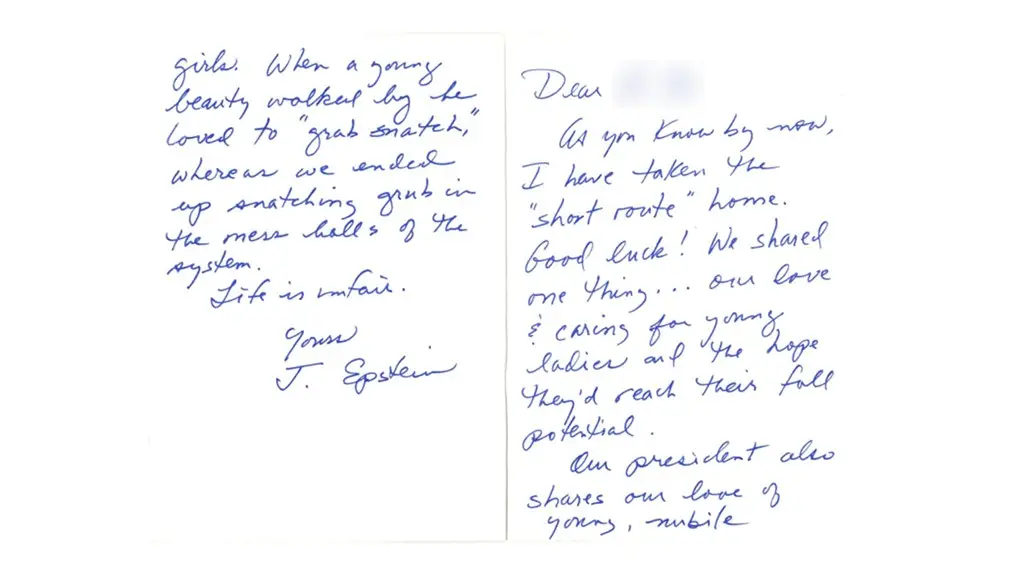 Dear
As you know by now,
I have taken the
"short route" home.
Good luck! We shared
one thing... our love
& caring for young
ladies and the hope
they'd reach their full
potential.
Our president also
shares our love of
young, nubile
girls. When a young
beauty walked by he
loved to "grab snatch,"
whereas we ended
up snatching grub in
the mess halls of the
system.
Life is unfair.
Yours
J. Epstein